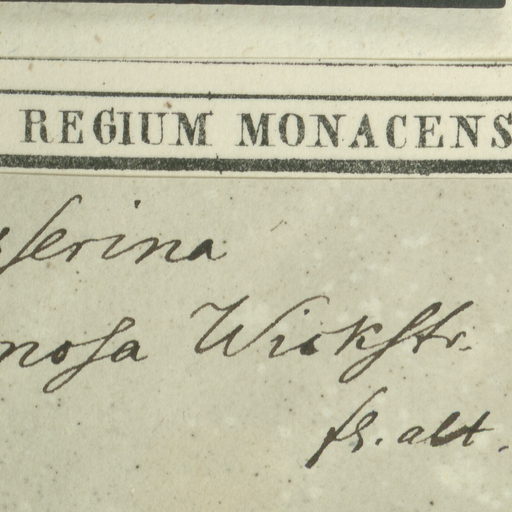 REGIUM MONACENS
sserina
nosa Wickstr.
fl. alt.